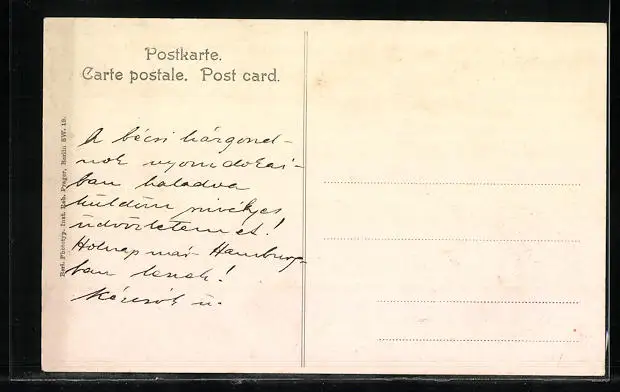 Postkarte.
Carte postale. Post card.
A bécsi házgond-
nok nyomdokai-
ban haladva
küldöm szívélyes
üdvözletemet!
Holnap már Hamburg-
ban leszek!
Kézcsók
Phototyp. Inst. Rob. Prager, Berlin SW. 19.